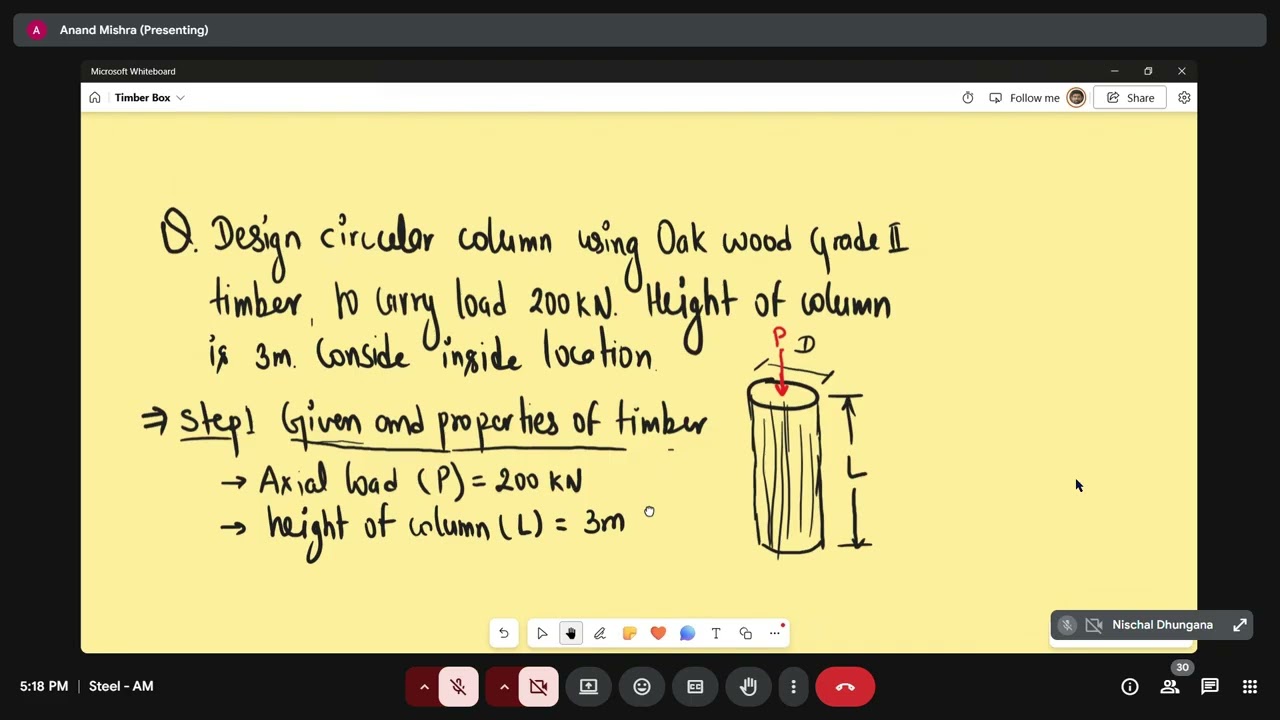 A Anand Mishra (Presenting)
Microsoft Whiteboard
Timber Box
Follow me
Share
Q. Design circular column using Oak wood Grade II
timber, to carry load 200 KN. Height of column
is 3m. Conside inside location.
P
D
⇒ Step 1 Given and properties of timber
→ Axial load (P) = 200 KN
→ height of column (L) = 3m
L
T
Nischal Dhungana
30
5:18 PM | Steel - AM
CC